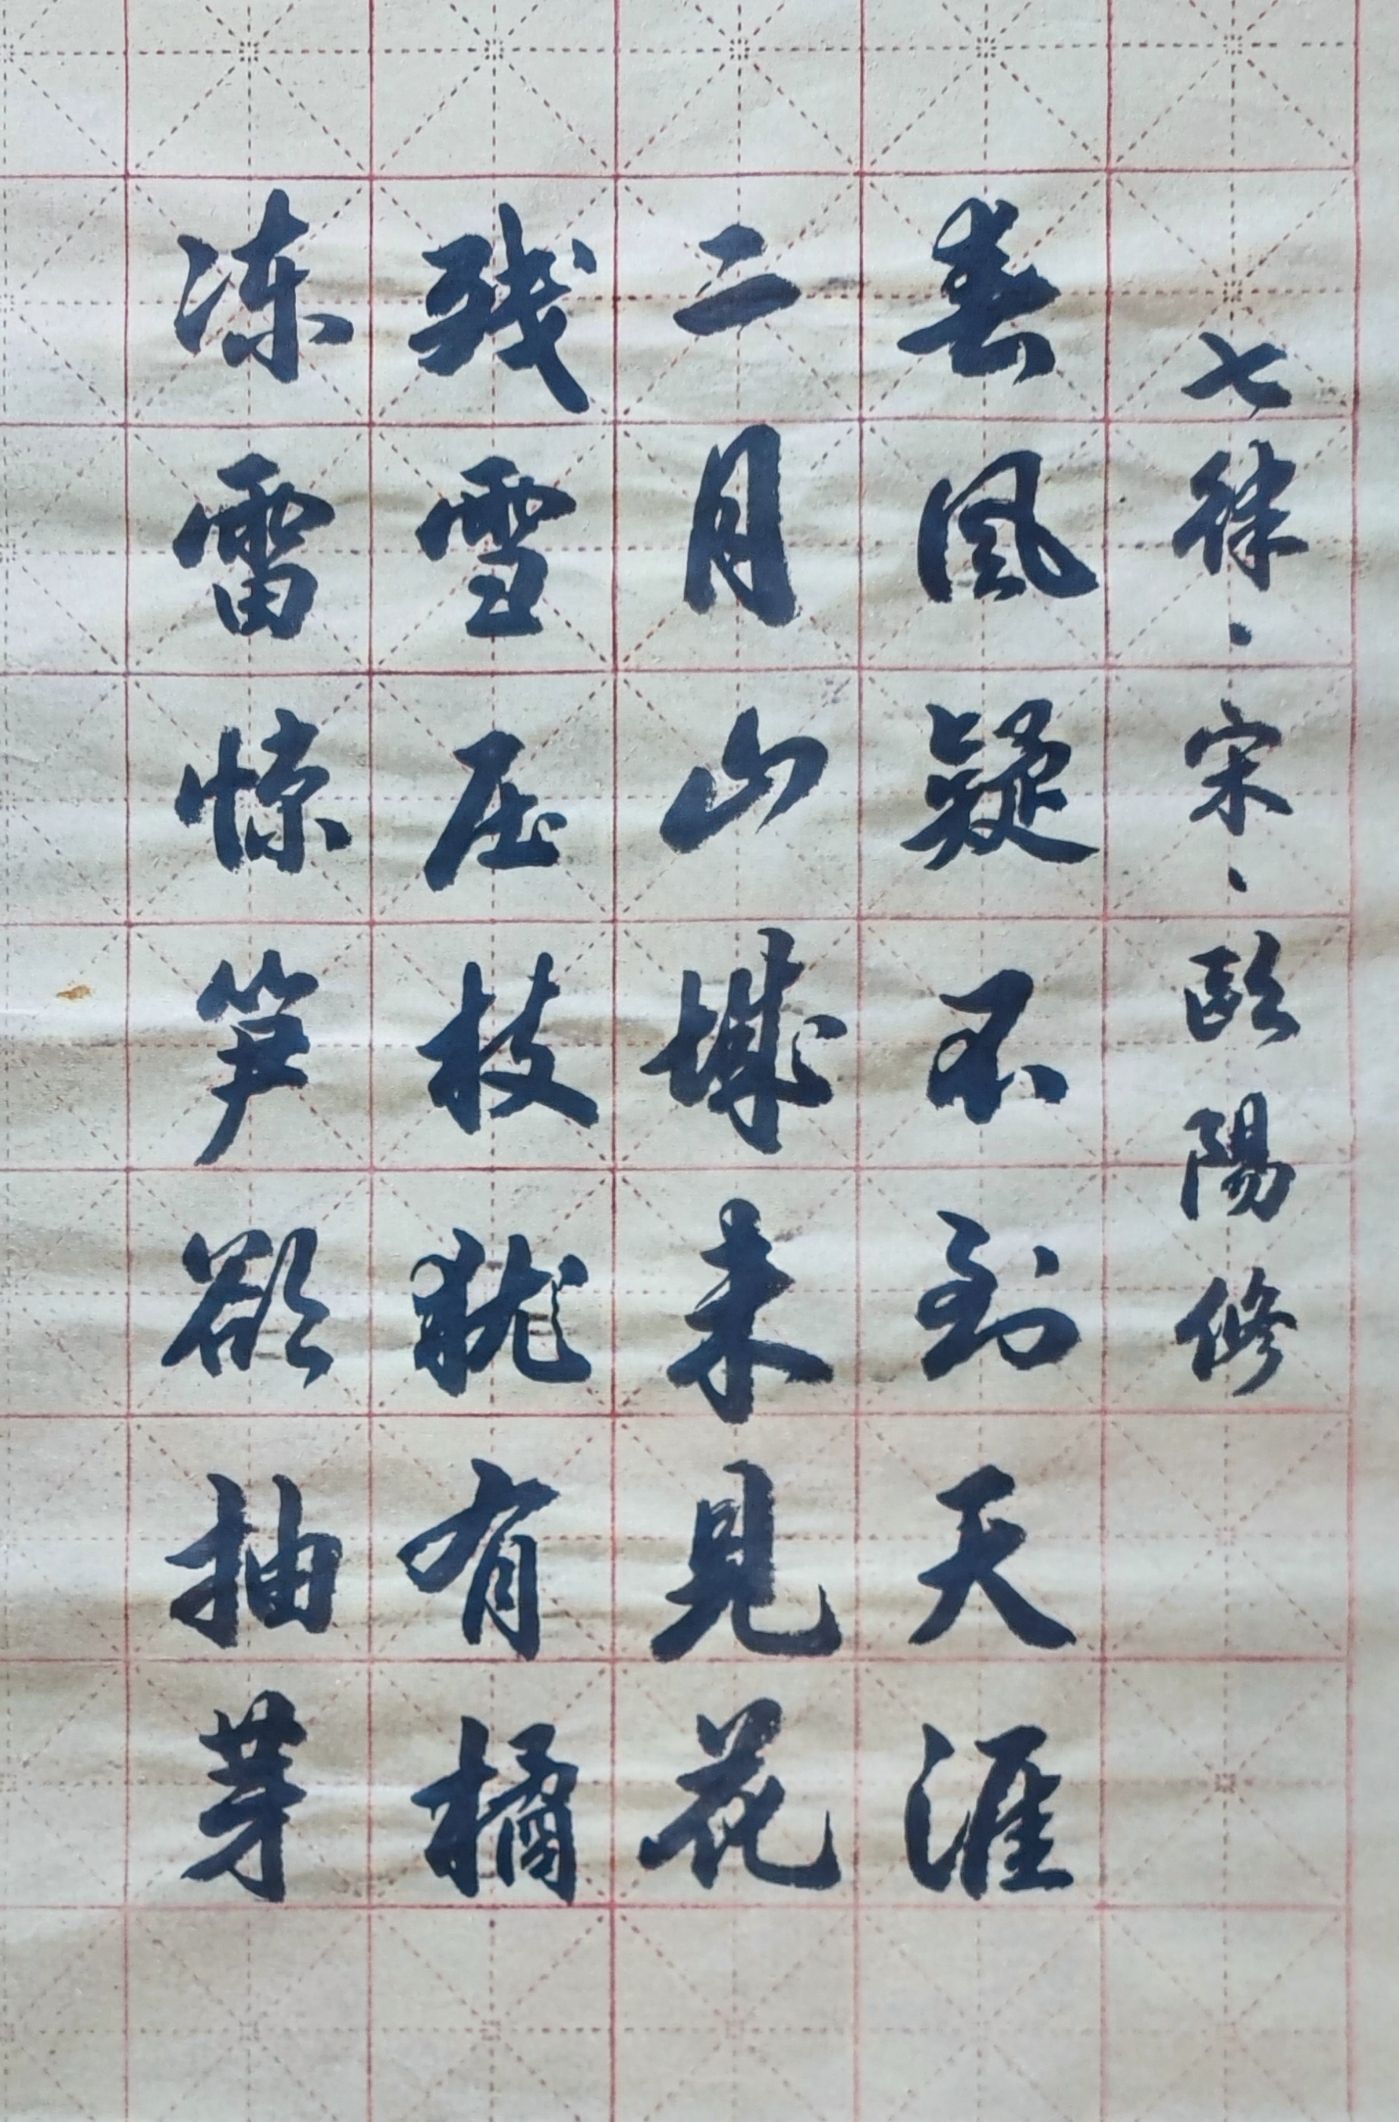 七律·宋·歐陽修
春風疑不到天涯
二月山城未見花
残雪压枝犹有橘
冻雷惊笋欲抽芽